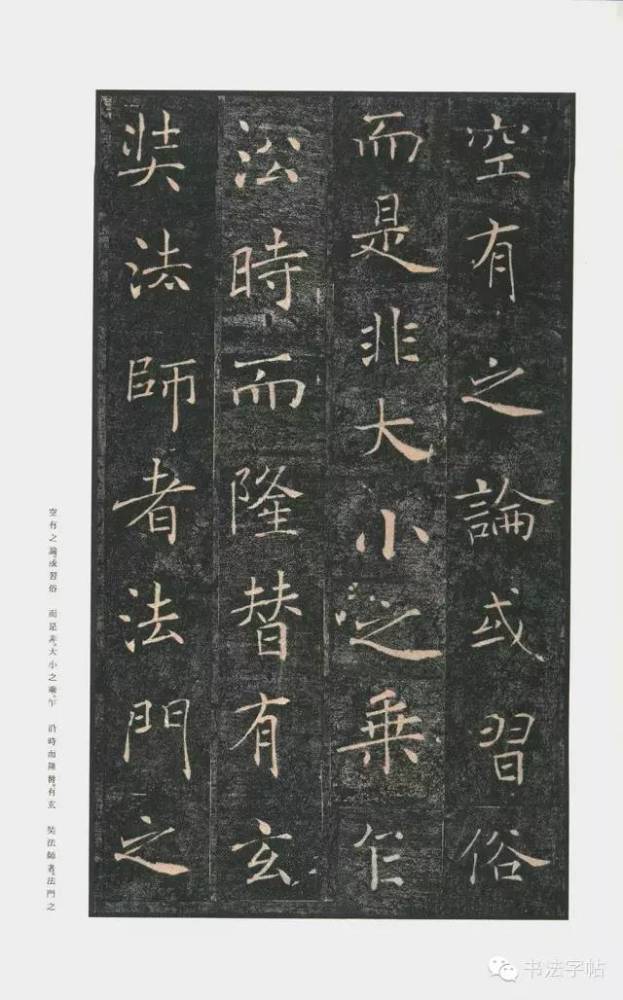 空有之論或習俗
而是非大小之乗乍
沿時而隆替有玄
奘法師者法門之
空有之論或習俗 而是非大小之乘乍 沿時而隆替有玄 奘法師者法門之
书法字帖